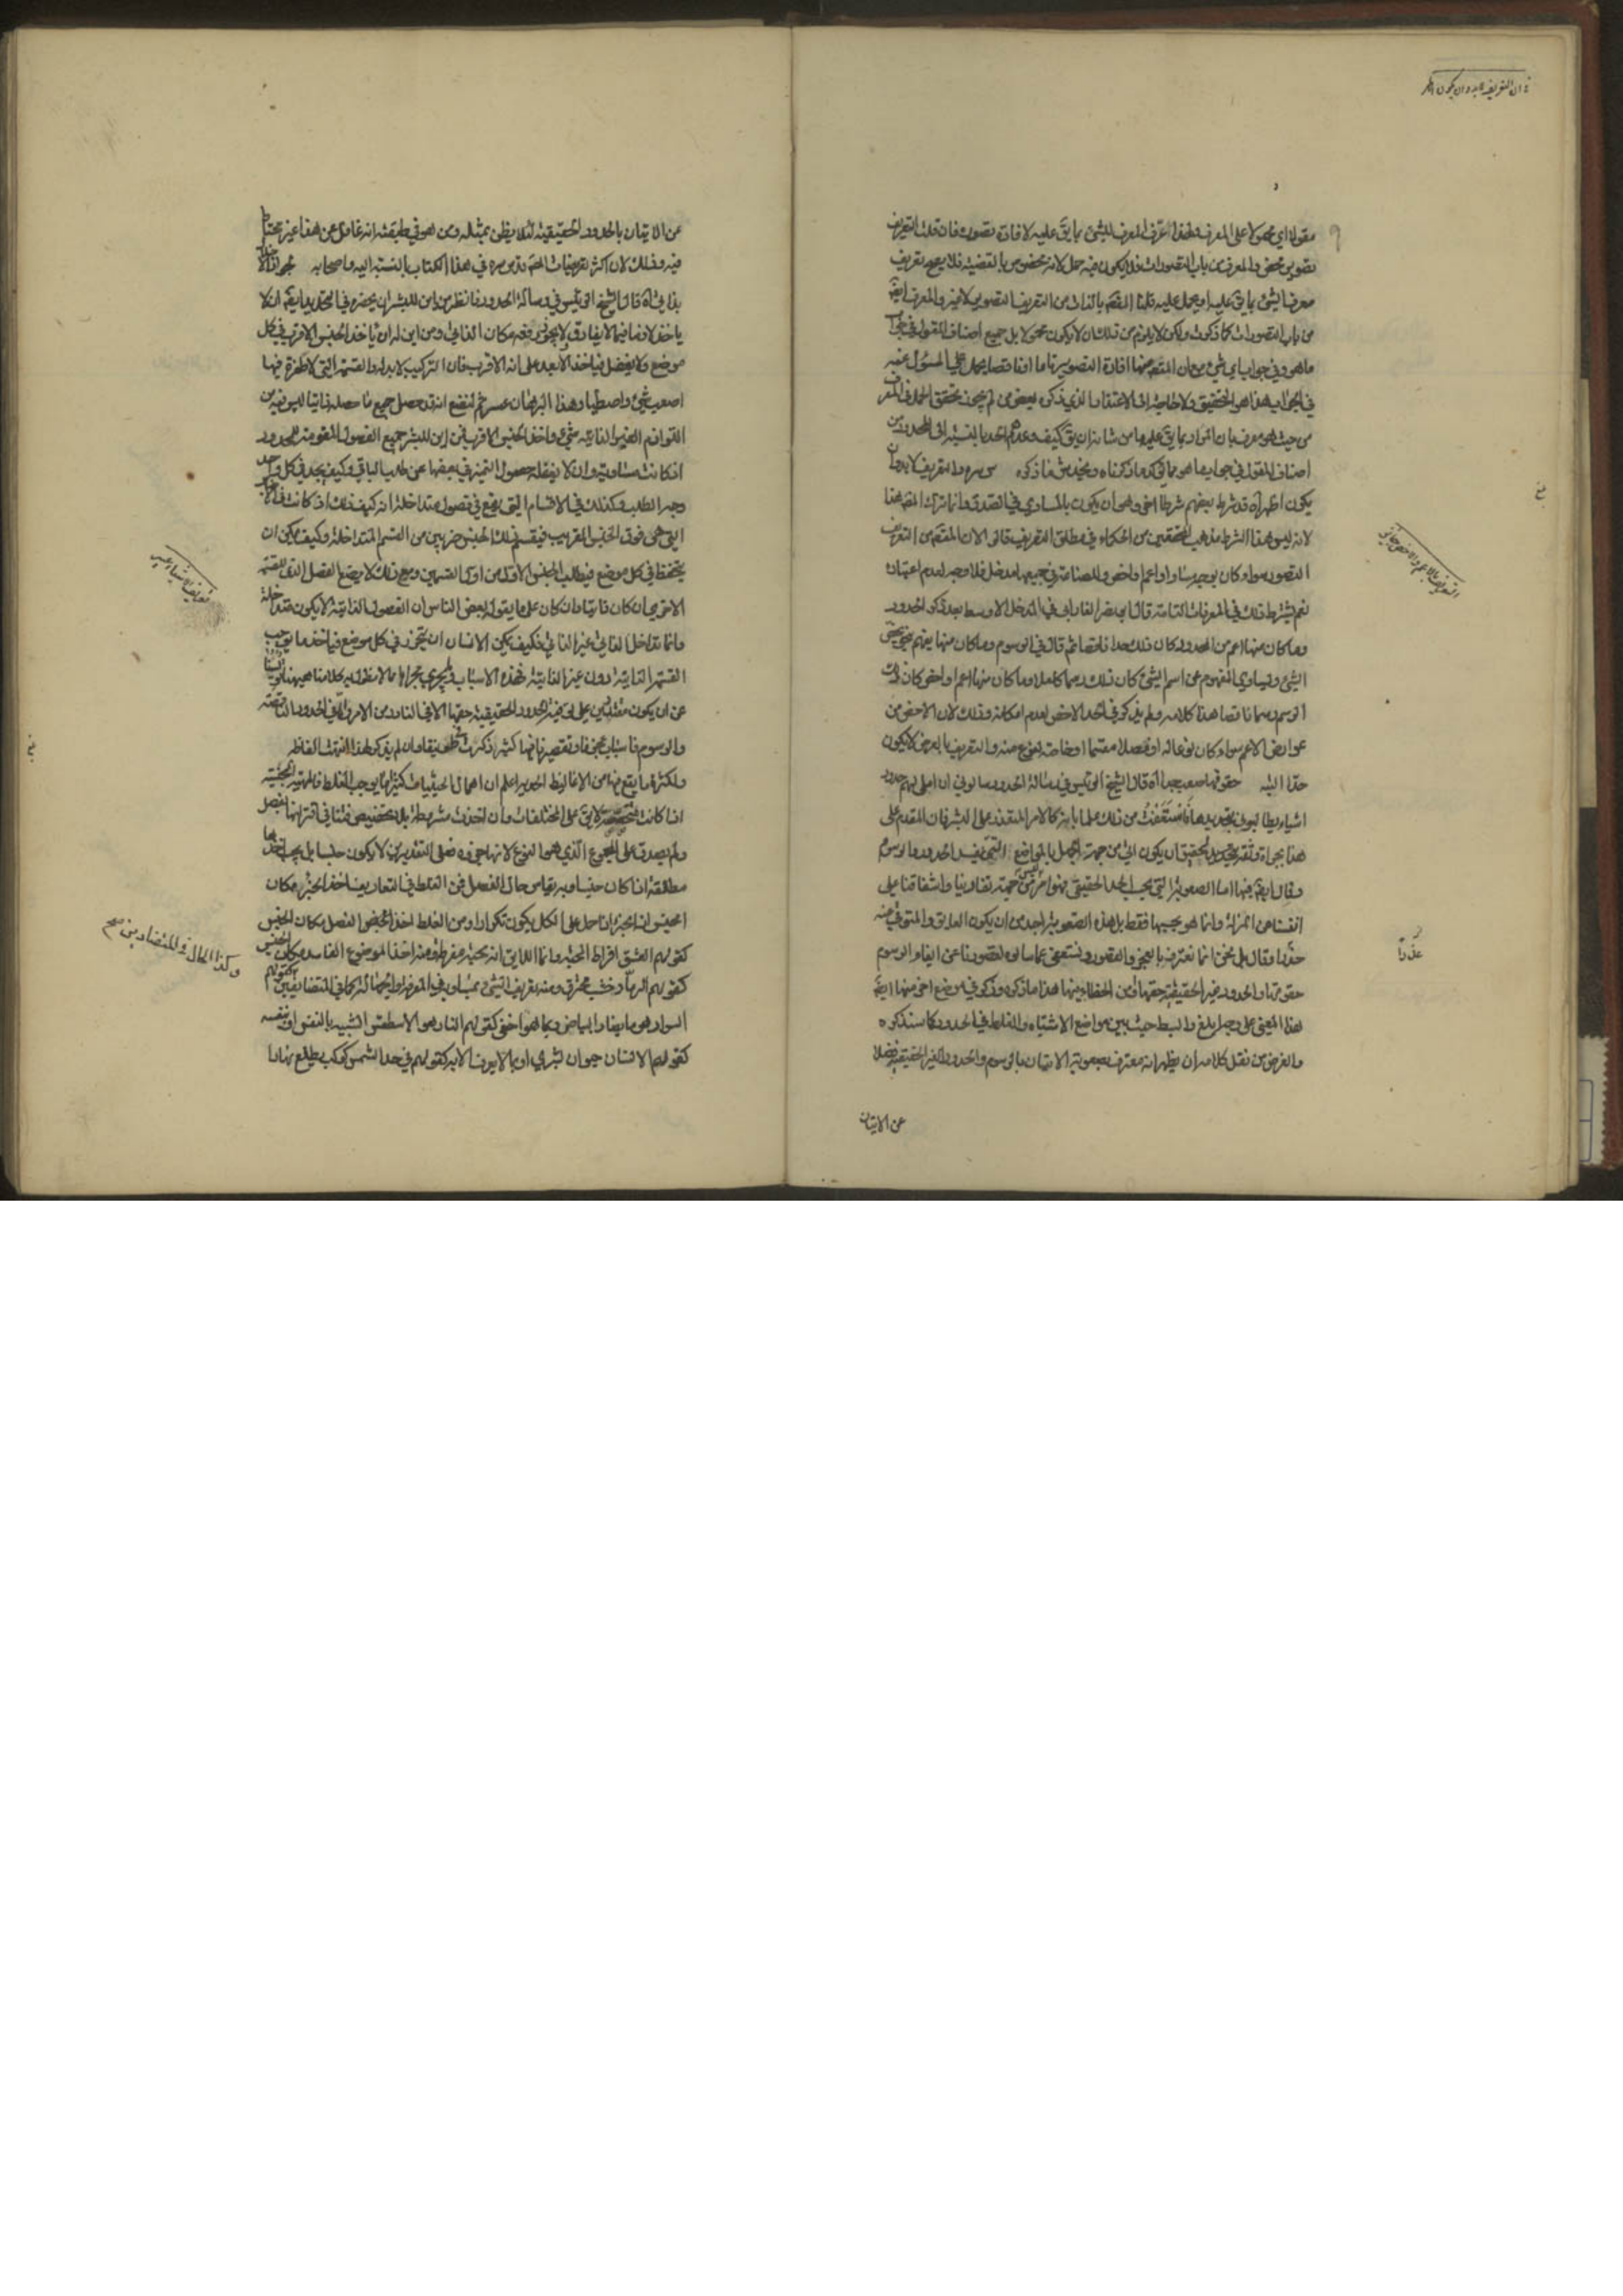 ان التعريف لا بد وان يكون
مقولا اي محمولا على المعرف ولهذا عرّف المعرف للشئ بما يق عليه لافادة تصوره فان قلت التعريف
تصوير محض والمعرف من باب التصورات فلا يكون فيه حمل لانه مخصوص بالقضية فلا يصح تعريف
معرف الشئ بما يق عليه او يحمل عليه قلنا القصد بالذات من التعريف التصوير لا غير والمعرف ايضً
من باب التصورات كما ذكرت ولكن لا يلزم من ذلك ان لا يكون محمولا بل جميع اصناف المقول في جواب
ما هو وفي جواب اي شئ هو فان المقصد منها افادة التصوير تاما او ناقصا يحمل على المسؤل عنه
في الجواب هذا هو التحقيق ولا حاجة الى الاعتقاد الذي ذكره بعض من لم يجوز تحقق الحمل في المعرف
من حيث هو معرف بان المراد بما يق عليه ما من شانه ان يق كيف وعدهم الحد بالنسبة الى المحدود من
اصناف المقول في جواب ما هو مما يؤكد ما ذكرناه ويخدش ما ذكره س سره والتعريف لا بد وان
يكون اظهر آه قد شرط بعضهم شرطا اخر وهو ان يكون بالمساوي في الصدق وانما ترك المصه هذا
لانه ليس هذا الشرط مذهب المحققين من الحكماء في مطلق التعريف قالوا لان المقصد من التعريف
التصور سواء كان بوجه مساو او اعم او اخص وللصناعة في جميعها مدخل فلا وجه لعدم اعتباره
نعم يشترط ذلك في المعرفات التامة قال ابو نصر الفارابي في المدخل الاوسط بعد ذكر الحدود
وما كان منها اعم من المحدود كان ذلك حدا ناقصا ثم قال في الرسوم وما كان منها يفهم
الشئ ويساوي المفهوم عن اسم الشئ كان ذلك رسما كاملا وما كان منها اعم او اخص كان ذلك
الرسم رسما ناقصا هذا كلامه ولم يذكر في الحد الاخص لعدم امكانه وذلك لان الاخص من
عوارض الاعم سواء كان نوعا له او فصلا مقسما او خاصة لنوع منه والتعريف بالعرض لا يكون
حدّا البتة حقوقها صعب جدا آه قال الشيخ الرئيس في رسالة الحدود سالوني ان املي لهم حدود
اشياء يطالبوني بتحديدها فاستعفيت من ذلك علما بانه كالامر المتعذر على البشر فان المقدم على
هذا بجراة وثقة بتحديد لحقيق ان يكون اتي من جهة الجهل بالمواضع التي تفسد الحدود والرسوم
وقال ايضً فيها اما الصعوبة التي يجب الحد الحقيقي فهو امر ليس من جهة تفادينا واشفاقنا على
انفسنا من الزلة وانما هو بحسبها فقط بل هذه الصعوبة اجدر من ان يكون العائق والمتوقي منه
حقّرا وقال بل نحن انما نعترف بالعجز والقصور ونستعفي عما سالوه لقصورنا عن ايفاء الرسوم
حقوقها والحدود غير الحقيقية حقها فمن الخطاء منها هذا ما ذكره وذكر في موضع اخر منها ايضً
لهذا المعنى على وجه ابلغ وابسط حيث بين مواضع الاشتباه والغلط في الحدود كما سنذكره
والغرض من نقل كلامه ان يظهر انه معترف بصعوبة الاتيان بالرسوم والحدود الغير الحقيقية فضلا
عن الاتيان
التعريف بالاعم والاخص جايز
عن الاتيان بالحدود الحقيقية لئلا يظن بمثله ومن هو في طبقته انه غافل عن هذا غير محتاط
فيه وذلك لان اكثر تعريفات المص قدس سره في هذا الكتاب بالنسبة اليه واصحابه
بذاتي آه قال الشيخ الرئيس في رسالة الحدود فانظر من اين للبشر ان يحضره في التحديد ايضً ان لا
ياخذ لازما مما لا يفارق ولا يجوز رفعه مكان الذاتي ومن اين له ان ياخذ الجنس الاقرب في كل
موضع ولا يغفل فياخذ الابعد على انه الاقرب فان التركيب لا بد له والقسمة التي لا طفرة فيها
اصعب شئ واصطياد هذا البرهان عسر ثم لنضع انه قد حصل جميع ما حصله ذاتيا ليس فيه من
اللوازم الغير الذاتية شئ واخذ الجنس الاقرب فمن اين للبشر جميع الفصول المقومة للمحدود
اذ كانت مساوية وان لا يغفله حصول التميز في بعضها عن طلب الباقي وكيف يجد في كل واحد
وجه الطلب وكذلك في الاقسام التي يقع في فصول متداخلة انه كيف ذلك اذ كانت
التي هي فوق الجنس القريب فيقسم ذلك الجنس ضربين من القسم المتداخلة وكيف يمكن ان
يتحفظ في كل موضع فيطلب الجنس الاول من اولى القسمين ومع ذلك لا يضع الفصل الذي للقسمة
الاخرى ان كان ذاتيا وان كان على ما يقول بعض الناس ان الفصول الذاتية لا يكون متداخلة
وانما تداخل الذاتي غير الذاتي فكيف يمكن الانسان ان يتحرز في كل موضع فياخذ ما توجب
القسمة الذاتية دون غير الذاتية فهذه الاسباب وما يجري مجراها مما لا نطول به كلامنا ههنا
عن ان يكون مقتدرين على توفية الحدود الحقيقية حقها الا في النادر من الامر واما في الحدود الناقصة
والرسوم فاسباب عجزنا وتقصيرنا فيها كثيرة ذكرت في طوبيقا وان لم يذكر لهذا انتهت الفاظه
ولكثرة ما يقع فيها من الاغاليط الحد اعلم ان اهمال الحيثيات كثيرا ما يوجب الغلط فالمهية الجنسية
اذا كانت متخصصة لا يق على المختلفات وان اخذت مشروطة بلا تخصيص
ولم يصدق على المجموع الذي هو النوع لانها جزءه فعلى التقديرين لا يكون جنسا بل يجب اخذها
مطلقة اذا كان جنسا وبه يقاس حال الفصل فمن الغلط في التعاريف اخذ الجزء مكان
الجنس اذ الجزء اذا حمل على الكل يكون تكرارا ومن الغلط اخذ الفصل مكان الجنس
كقولهم العشق افراط المحبة وانما اللايق انه محبة مفرطة ومنه اخذ الموضوع الفاسد مكان الجنس
كقولهم الرماد خشب محترق ومنه تعريف الشئ بما يساويه في المعرفة والجهالة كما في المتضايفين كقولهم
السواد هو ما يضاد البياض وبما هو اخفى كقولهم النار هو الاسطقس الشبيه بالنفس او بنفسه
كقولهم الانسان حيوان بشري او بما لا يعرف الا به كقولهم في حد الشمس كوكب يطلع نهارا
وكذا الحال في المتضادين صح